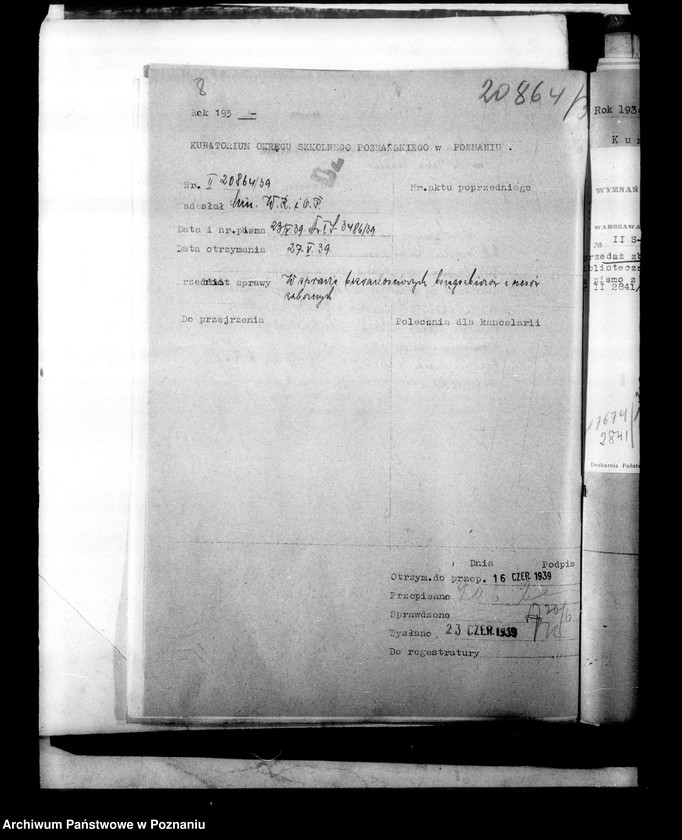 8
20864/3
Rok 193
KURATORIUM OKRĘGU SZKOLNEGO POZNAŃSKIEGO w POZNANIU.
Nr. II 20864/39
Nr.aktu poprzedniego
adesłał Min. W.R. i O.P.
Data i nr. pisma 23/V 39 3486/39
Data otrzymania 27.V.39
rzedmiot sprawy W sprawie
Do przejrzenia
Polecenia dla kancelarii
Dnia Podpis
Otrzym.do przep. 16 CZER. 1939
Przepisano
Sprawdzono 20/6
Wysłano 23 CZER. 1939
Do regestratury
Rok 193
Kur
WYZNAŃ
WARSZAWA
№ II S-
rzedaż zb
blioteczn
pismo z
II 2841/
17674
2841
Drukarnia Państw
Archiwum Państwowe w Poznaniu